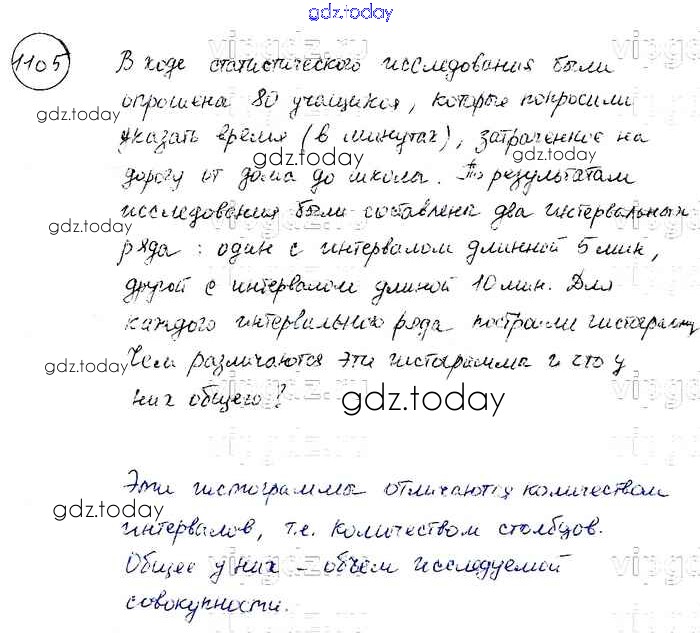 gdz.today
1105
В ходе статистического исследования были
опрошена 80 учащихся, которые попросили
gdz.today
указать время (в минутах), затраченное на
gdz.today
gdz.today
дорогу от дома до школы. По результатам
исследования были составлена два интервальных
gdz.today
ряда: один с интервалом длинной 5 мин,
другой с интервалом длиной 10 мин. Для
каждого интервального ряда построили гистограмму
Чем различаются эти гистограммы и что у
gdz.today
них общего?
gdz.today
Эти гистограммы отличаются количеством
gdz.today
интервалов, т.е. количеством столбцов.
Общее у них – объем исследуемой
совокупности.